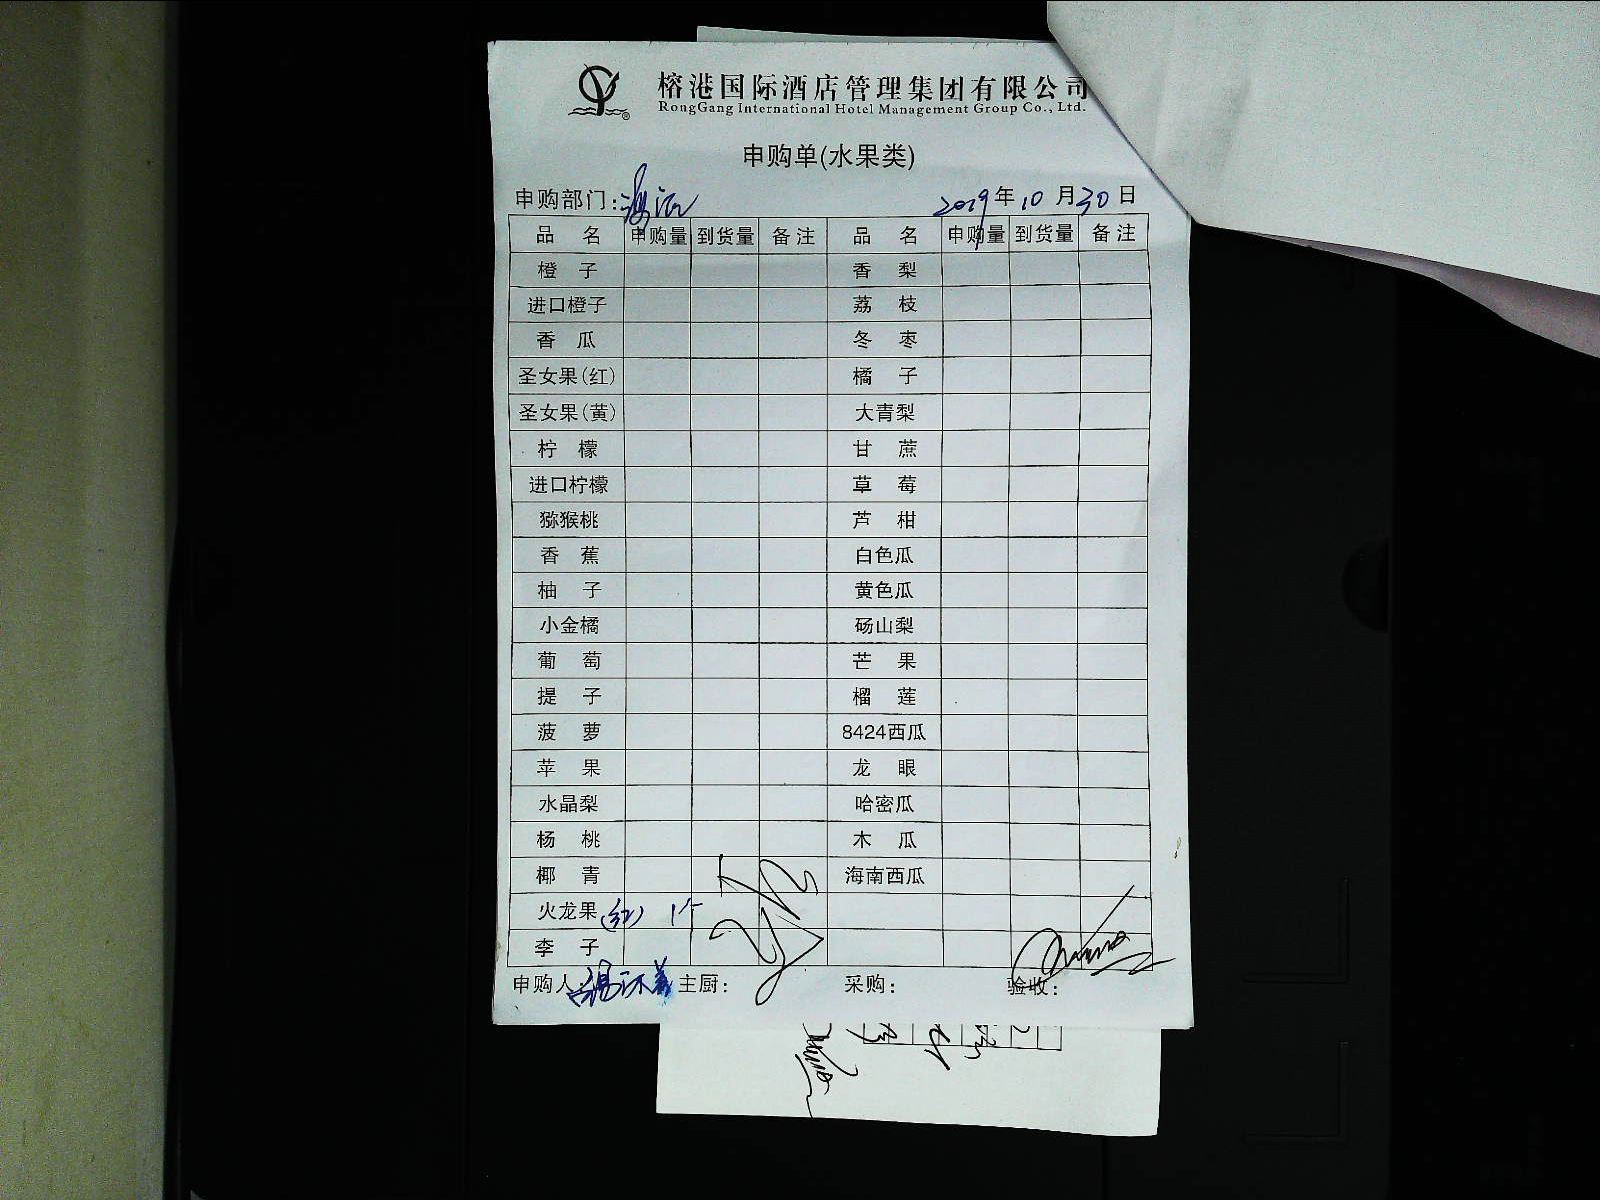 榕港国际酒店管理集团有限公司
RongGang International Hotel Management Group Co., Ltd.
申购单(水果类)
申购部门: 2019年10月30日
品名 申购量 到货量 备注 品名 申购量 到货量 备注
橙子 香梨
进口橙子 荔枝
香瓜 冬枣
圣女果(红) 橘子
圣女果(黄) 大青梨
柠檬 甘蔗
进口柠檬 草莓
猕猴桃 芦柑
香蕉 白色瓜
柚子 黄色瓜
小金橘 砀山梨
葡萄 芒果
提子 榴莲
菠萝 8424西瓜
苹果 龙眼
水晶梨 哈密瓜
杨桃 木瓜
椰青 海南西瓜
火龙果(红) 1个
李子
申购人: 主厨: 采购: 验收: